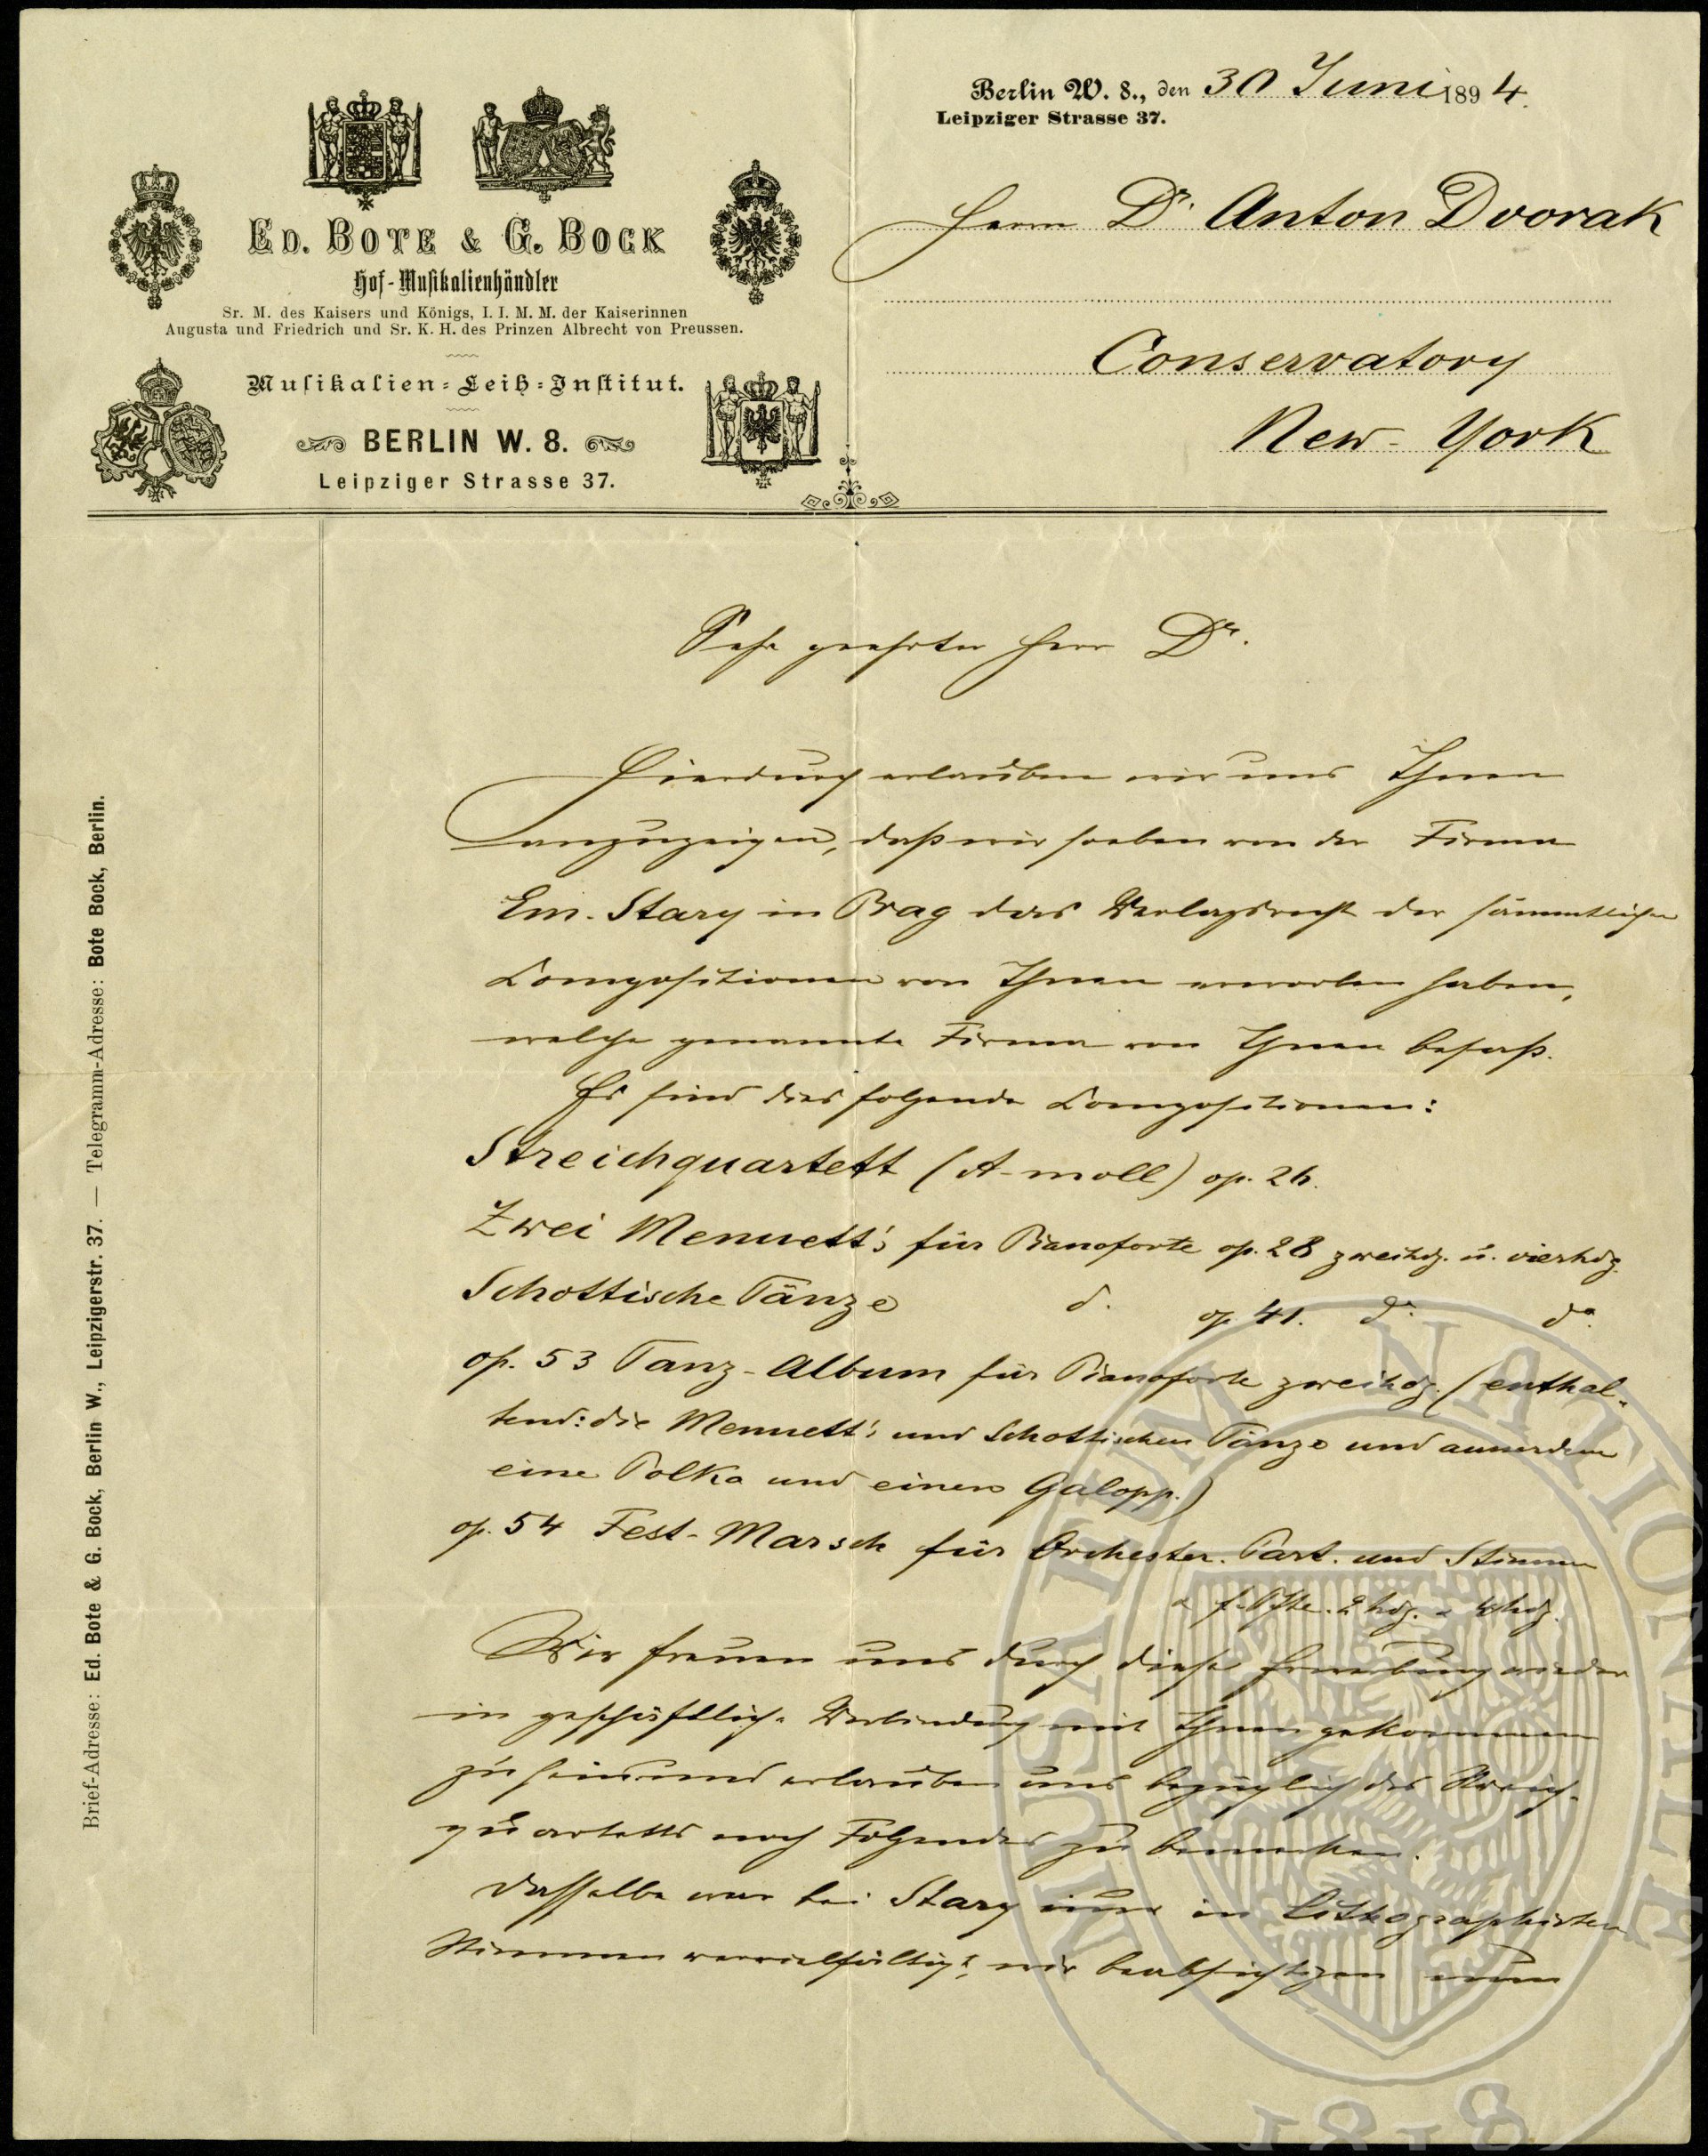 Berlin W. 8., den 30 Juni 1894.
Leipziger Strasse 37.
ED. BOTE & G. BOCK
Hof-Musikalienhändler
Sr. M. des Kaisers und Königs, I. I. M. M. der Kaiserinnen
Augusta und Friedrich und Sr. K. H. des Prinzen Albrecht von Preussen.
Musikalien-Leih-Institut.
BERLIN W. 8.
Leipziger Strasse 37.
Herrn Dr. Anton Dvorak
Conservatory
New-York
Brief-Adresse: Ed. Bote & G. Bock, Berlin W., Leipzigerstr. 37. — Telegramm-Adresse: Bote Bock, Berlin.
Sehr geehrter Herr Dr.
Hierdurch erlauben wir uns Ihnen
anzuzeigen, daß wir soeben von der Firma
Em. Stary in Prag das Verlagsrecht der sämmtlichen
Compositionen von Ihnen erworben haben,
welche genannte Firma von Ihnen besaß.
Es sind dies folgende Compositionen:
Streichquartett (A-moll) op. 26.
Zwei Menuett's für Pianoforte op. 28 zweihdg. u. vierhdg.
Schottische Tänze do. op. 41. do. do.
op. 53 Tanz-Album für Pianoforte zweihdg. (enthal-
tend: die Menuett's und Schottischen Tänze und ausserdem
eine Polka und einen Galopp.)
op. 54 Fest-Marsch für Orchester. Part. und Stimmen
u f. Pfte. 2 hdg. u 4 hdg.
Wir freuen uns durch diese Erwerbung wieder
in geschäftliche Verbindung mit Ihnen gekommen
zu sein und erlauben uns bezüglich des Streich-
quartetts noch Folgendes zu bemerken.
Dasselbe war bei Stary nur in lithographirten
Stimmen vervielfältigt, wir beabsichtigen nun
MUSAEUM NATIONALE
1818